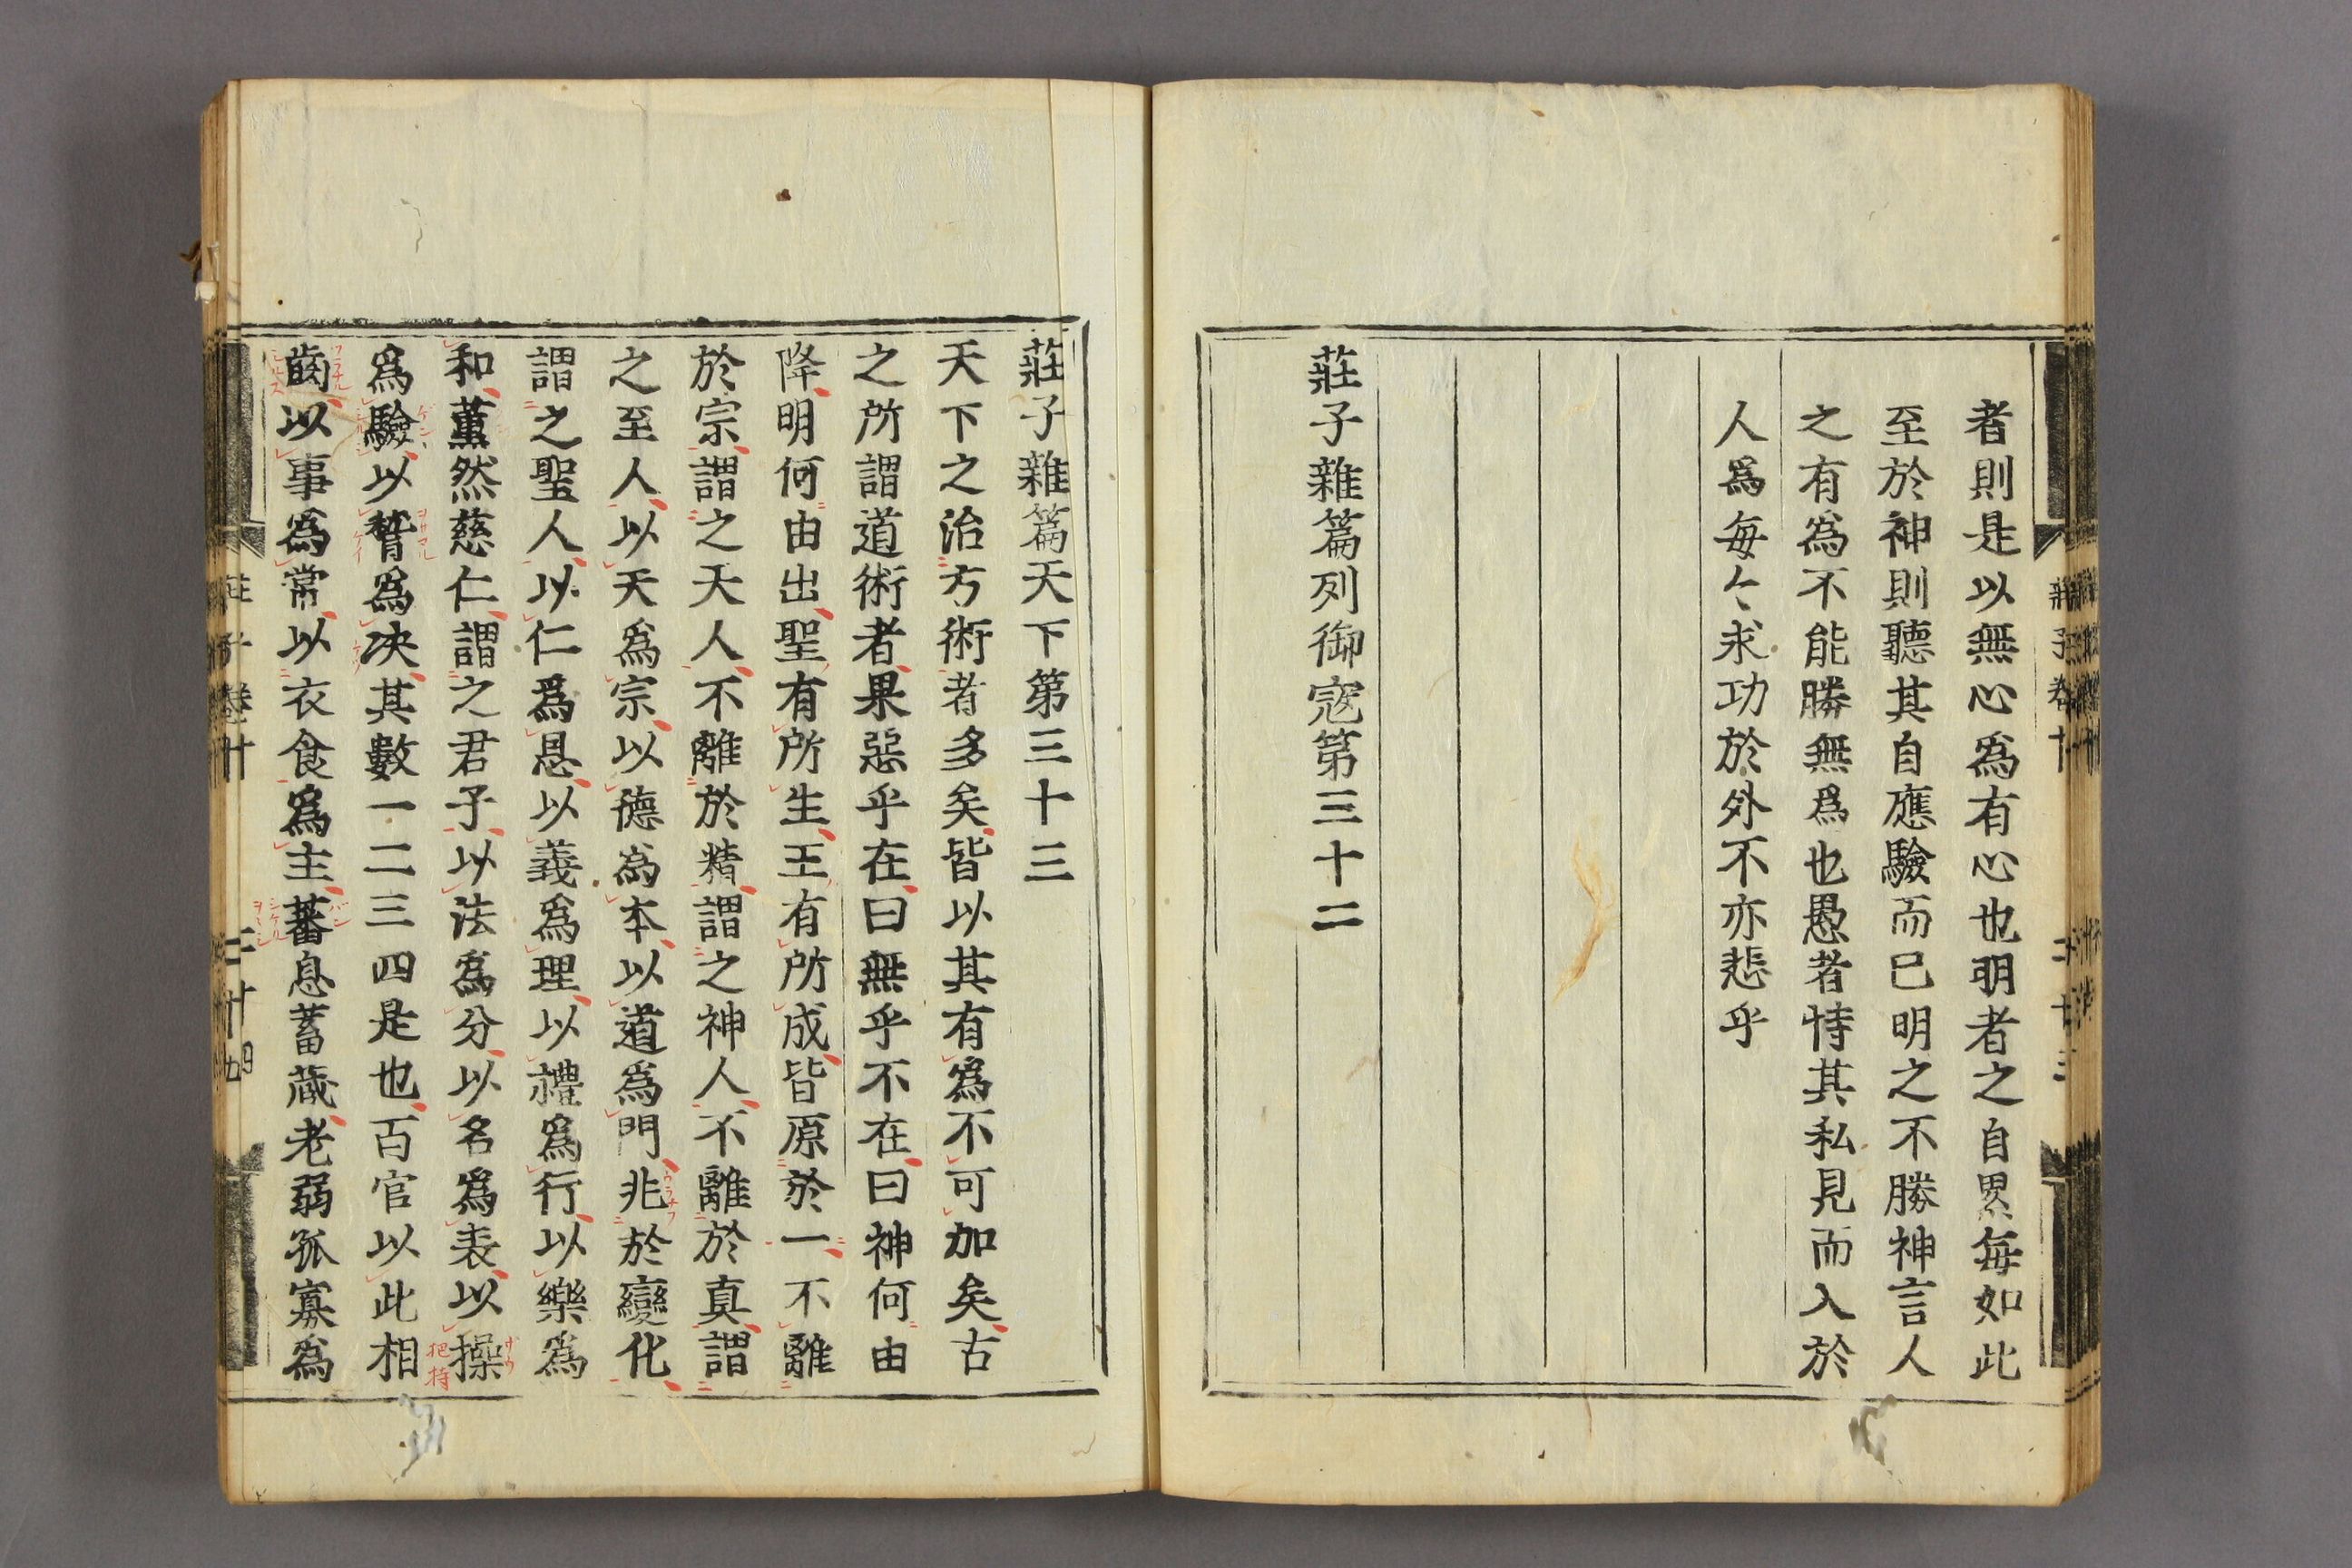 者則是以無心為有心也明者之自累每如此
至於神則聽其自應驗而已明之不勝神言人
之有為不能勝無爲也愚者恃其私見而入於
人爲每々求功於外不亦悲乎
莊子雜篇列御寇第三十二
莊子雜篇天下第三十三
天下之治方術者多矣皆以其有爲不可加矣古
之所謂道術者果惡乎在曰無乎不在曰神何由
降明何由出聖有所生王有所成皆原於一不離
於宗謂之天人不離於精謂之神人不離於真謂
之至人以天爲宗以德為本以道爲門兆於變化
謂之聖人以仁爲恩以義爲理以禮爲行以樂爲
和薰然慈仁謂之君子以法爲分以名爲表以操
爲驗以稽爲决其數一二三四是也百官以此相
齒以事爲常以衣食爲主蕃息蓄蔵老弱孤寡為
莊子卷十